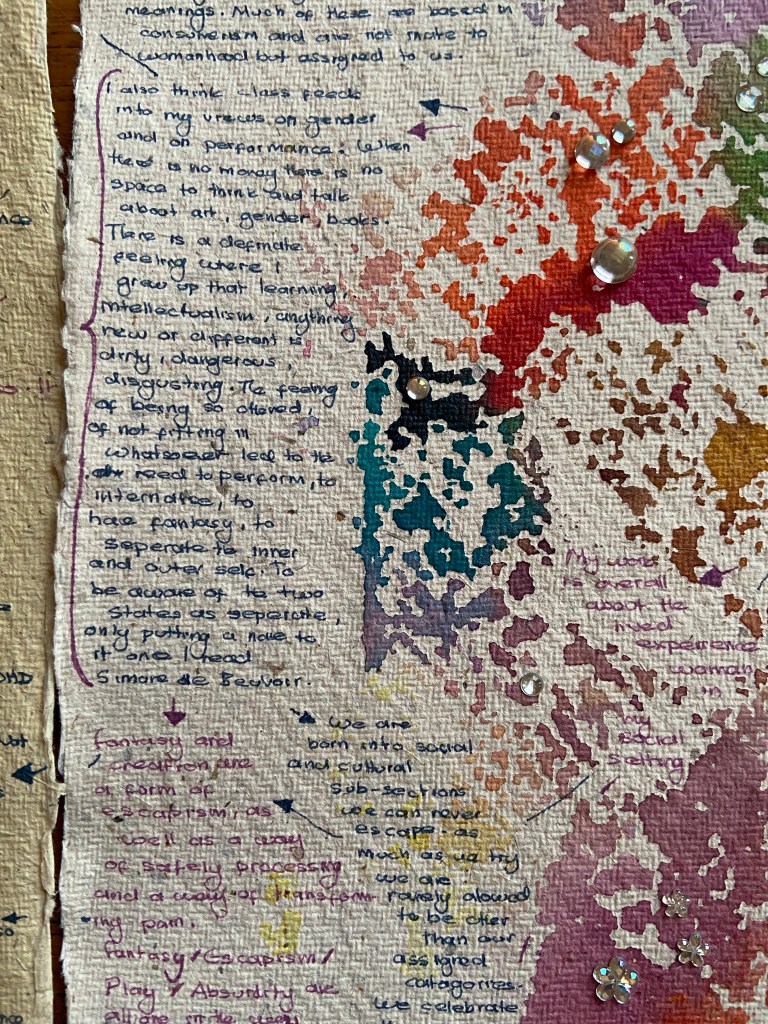 meanings. Much of these are based in
consumerism and are not inate to
womanhood but assigned to us.
I also think class feeds
into my views on gender
and on performance. When
there is no money there is no
space to think and talk
about art, gender, books.
There is a definate
feeling where I
grew up that learning,
intellectualism, anything
new or different is
dirty, dangerous,
disgusting. The feeling
of being so othered,
of not fitting in
whatsoever led to the
need to perform, to
internalise, to
have fantasy, to
seperate to inner
and outer self. To
be aware of the two
states as seperate,
only putting a name to
it one I read
Simone de Beauvoir.
fantasy and
creation are
a form of
escapism, as
well as a way
of safely processing
and a way of transform-
ing pain.
Fantasy/Escapism/
Play/Absurdity are
all one in the
we are
born into social
and cultural
sub-sections
we can never
escape. as
much as we try
we are
rarely allowed
to be other
than our
assigned
catagories.
we celebrate
My work
is overall
about the
lived
experience
woman
in
my
social
setting